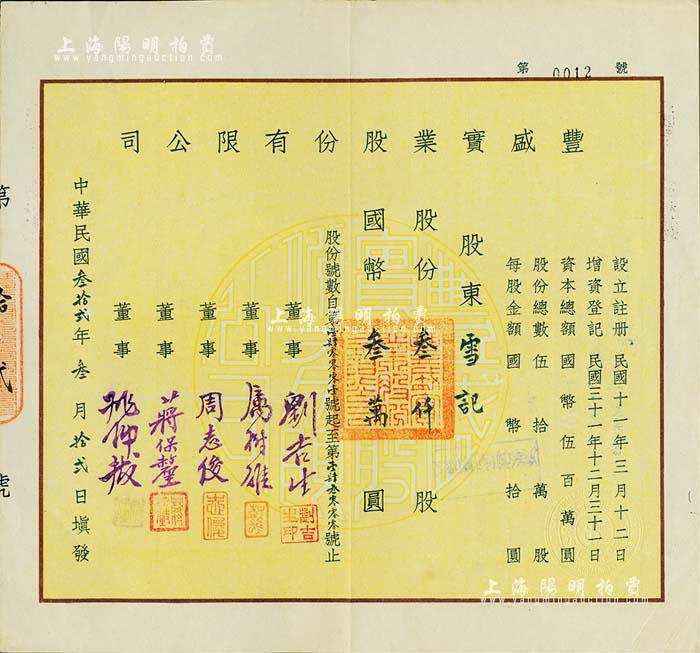 上海陽明拍賣
www.yangmingauction.com
第 0012 號
豐盛實業股份有限公司
設立註册 民國十一年三月十二日
增資登記 民國三十一年十二月三十一日
資本總額 國幣伍百萬圓
股份總數 伍拾萬股
每股金額 國幣拾圓
股東 雪記
股份 叁仟 股
國幣 叁萬 圓
股份號數自第
號起至第
號止
董事 劉吉生
董事 厲樹雄
董事 周志俊
董事 蔣保釐
董事 姚仲拔
中華民國叁拾弍年叁月拾弍日填發
第
拾弍
號
上海陽明拍賣
www.yangmingauction.com
上海陽明拍賣
www.yangmingauction.com